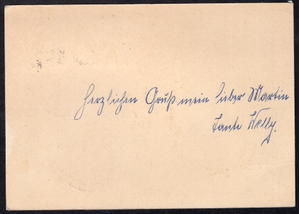 Herzlichen Gruß mein lieber Martin
Tante Nelly.